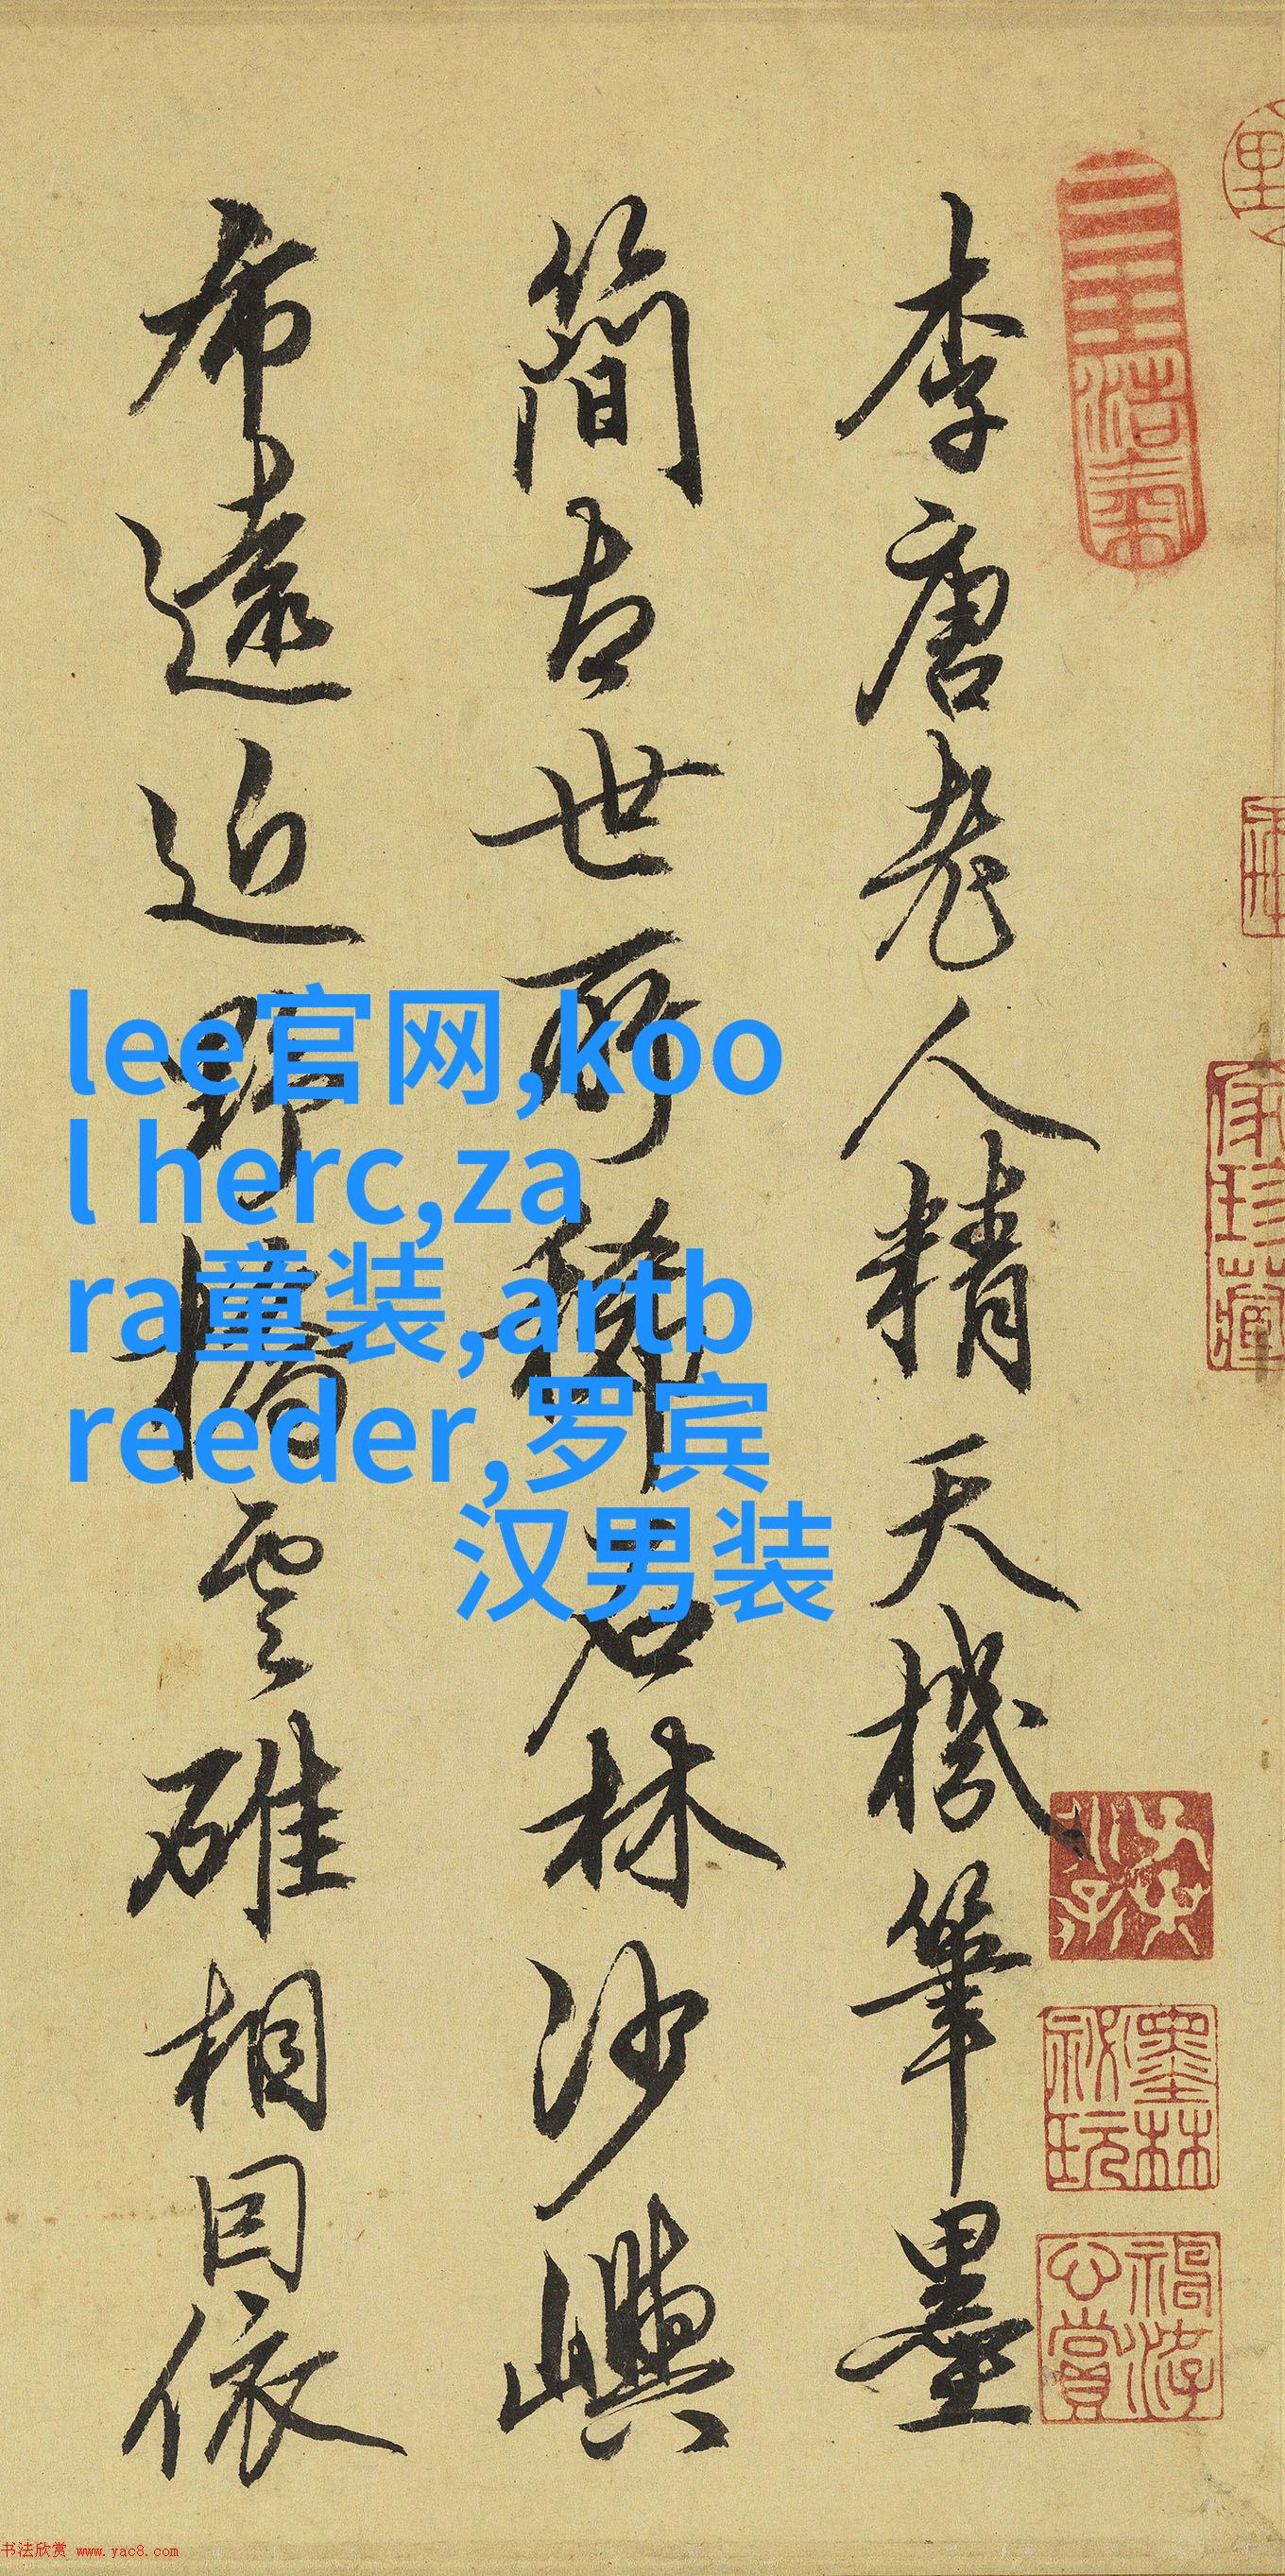 李唐老人精天機筆墨
簡古世所稱石林沙嶼
布遠近野橋雲碓相因依
lee官网,koo
l herc,za
ra童装,artb
reeder,罗宾
汉男装
三王浩气
家珍藏
墨林秘玩
书法欣赏 www.yac8.com